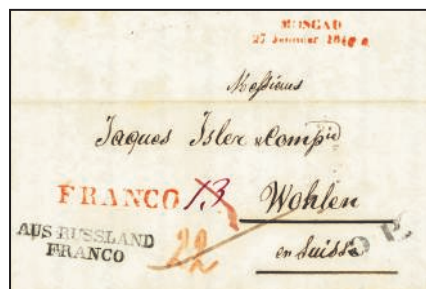 MOSGAU
27 Januar 184
Messieurs
Jaques Isler & Compie
FRANCO 13 Wohlen
AUS RUSSLAND
FRANCO
22
en Suisse